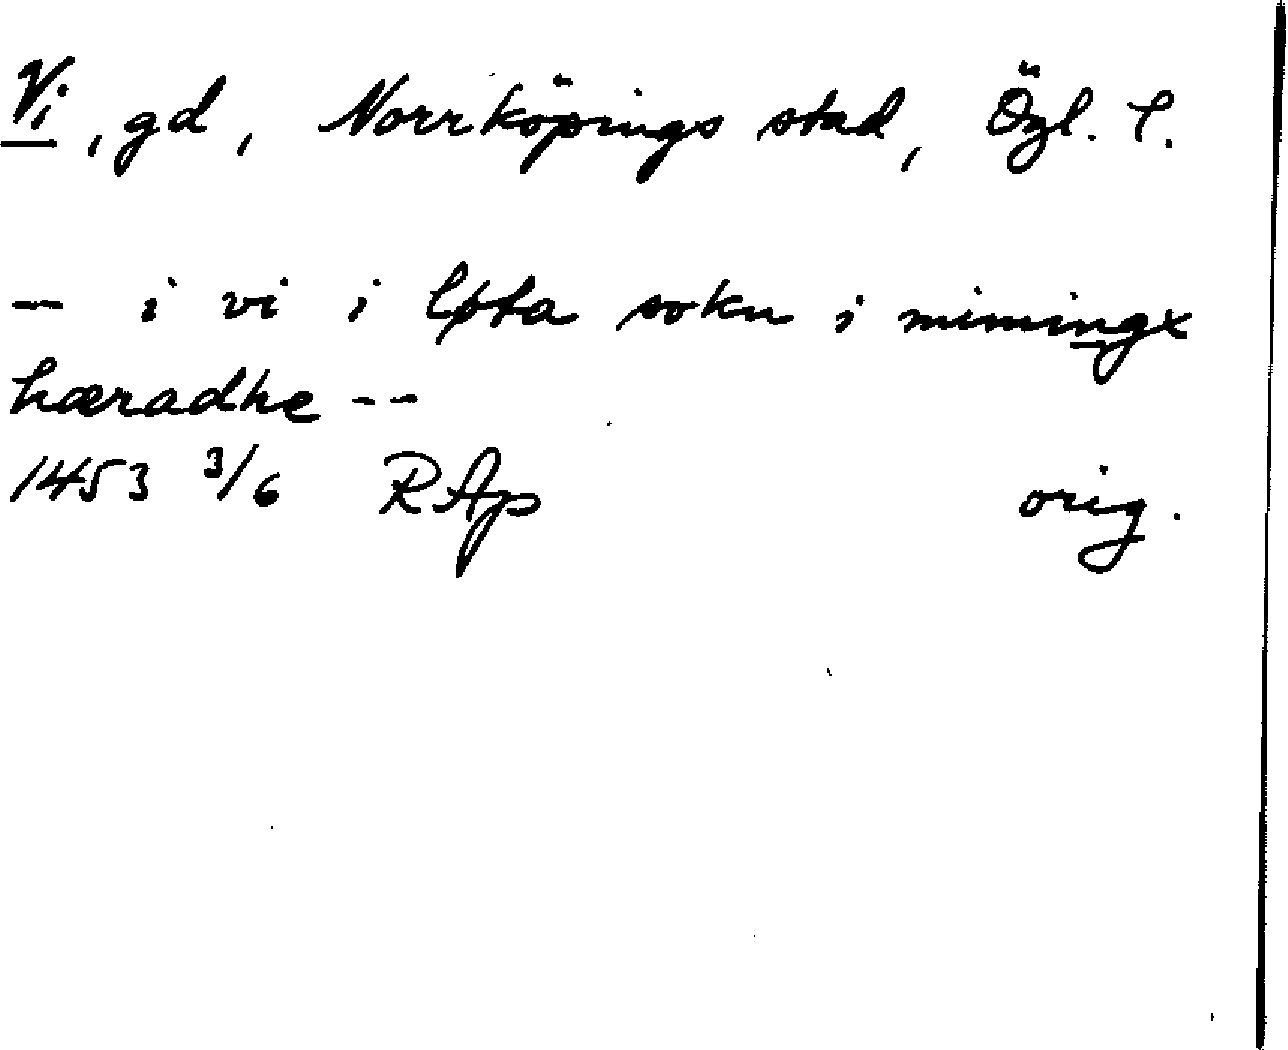 Vi, gd, Norrköpings stad, Ögl. l.
– i vi i løfta sokn i mimingx
hæradhe --
1453 3/6 RAp orig.